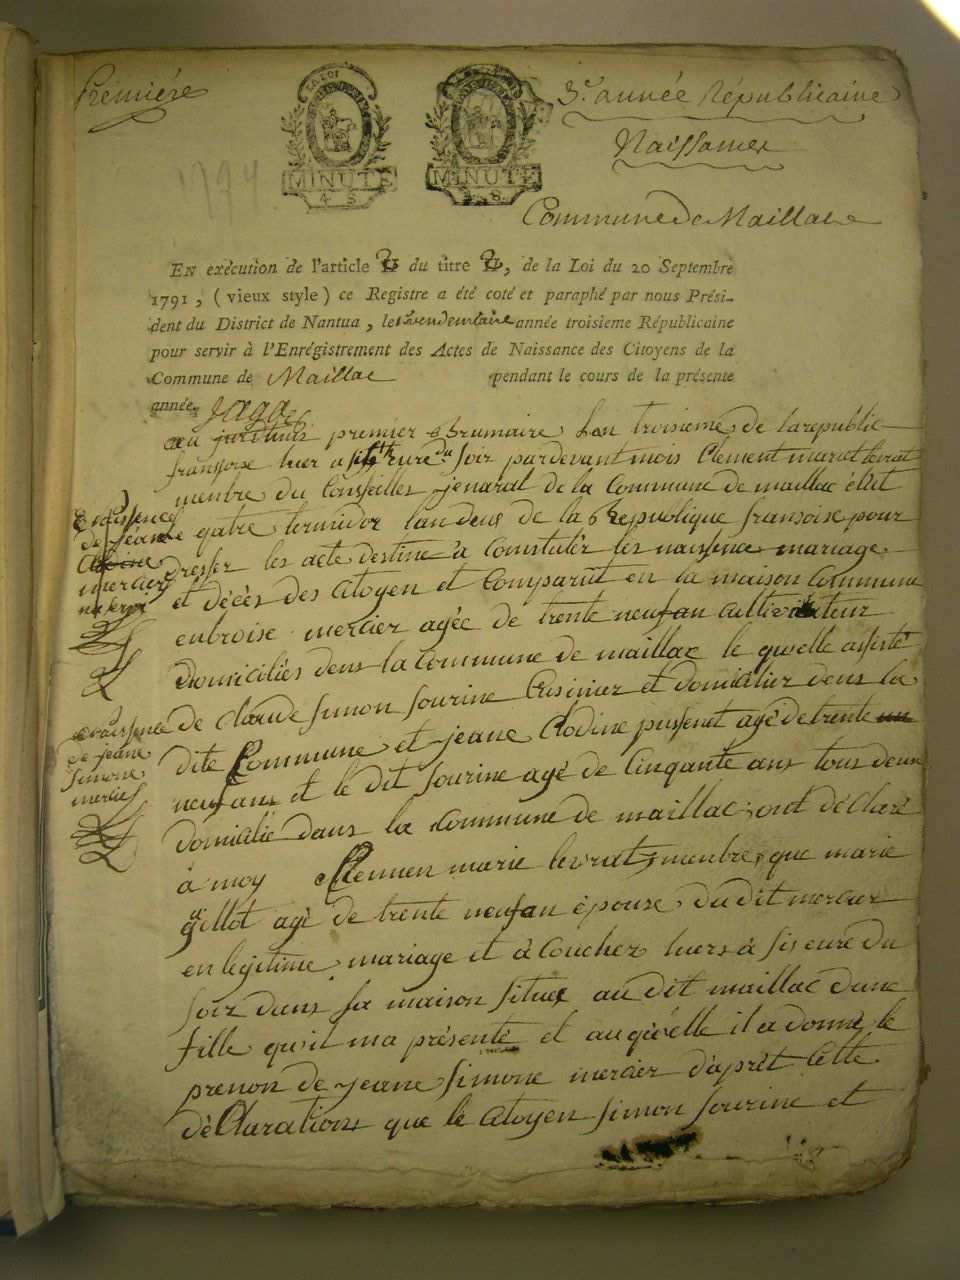 Première
LA LOI
MINUTE
4 S.
MINUTE
8.
3.e année Républicaine
Naissances
Commune de Maillac
1794
EN exécution de l'article 2 du titre 2, de la Loi du 20 Septembre
1791, (vieux style) ce Registre a été coté et paraphé par nous Prési-
dent du District de Nantua, le vendemiaire année troisieme Républicaine
pour servir à l'Enrégistrement des Actes de Naissance des Citoyens de la
Commune de Maillac pendant le cours de la présente
année.
premier Brumaire Lan troisieme de la republic
fransoise hier a six eure du soir pardevant mois Clement marie levrat
menbre du Conseilles jenaral de la Commune de maillac élut
le qatre termidor lan deus de la Republique fransoise pour
dresser les acte destine a Constulér les naissence mariage
et décès des Citoyen et Comparut en la maison Commune
enbroise mercier agée de trente neuf an cultivateur
domiciliés dens la Commune de maillac le quelle assisté
de Claude simon sourine Cusinier et domicilier dens la
dite Commune et jeane Clodine pussenet agé de trente un
neuf ans et le dit sourine agé de Cinquante ans tous deux
domicilié dans la Commune de maillac ont déClaré
à moy Clemen marie levrat menbre, que marie
gillot agé de trente neuf an épouse du dit mercier
en legitime mariage et à acoucher hiers à sis eure du
soir dans sa maison situee au dit maillac dune
fille qu'il ma présenté et au quelle il a donné le
prenon de jeane simone mercier d'aprèt Cette
déClarations que le Citoyen simon sourine et
naissence
de jeane
mercier
naissence
de jeane
simone
mercier